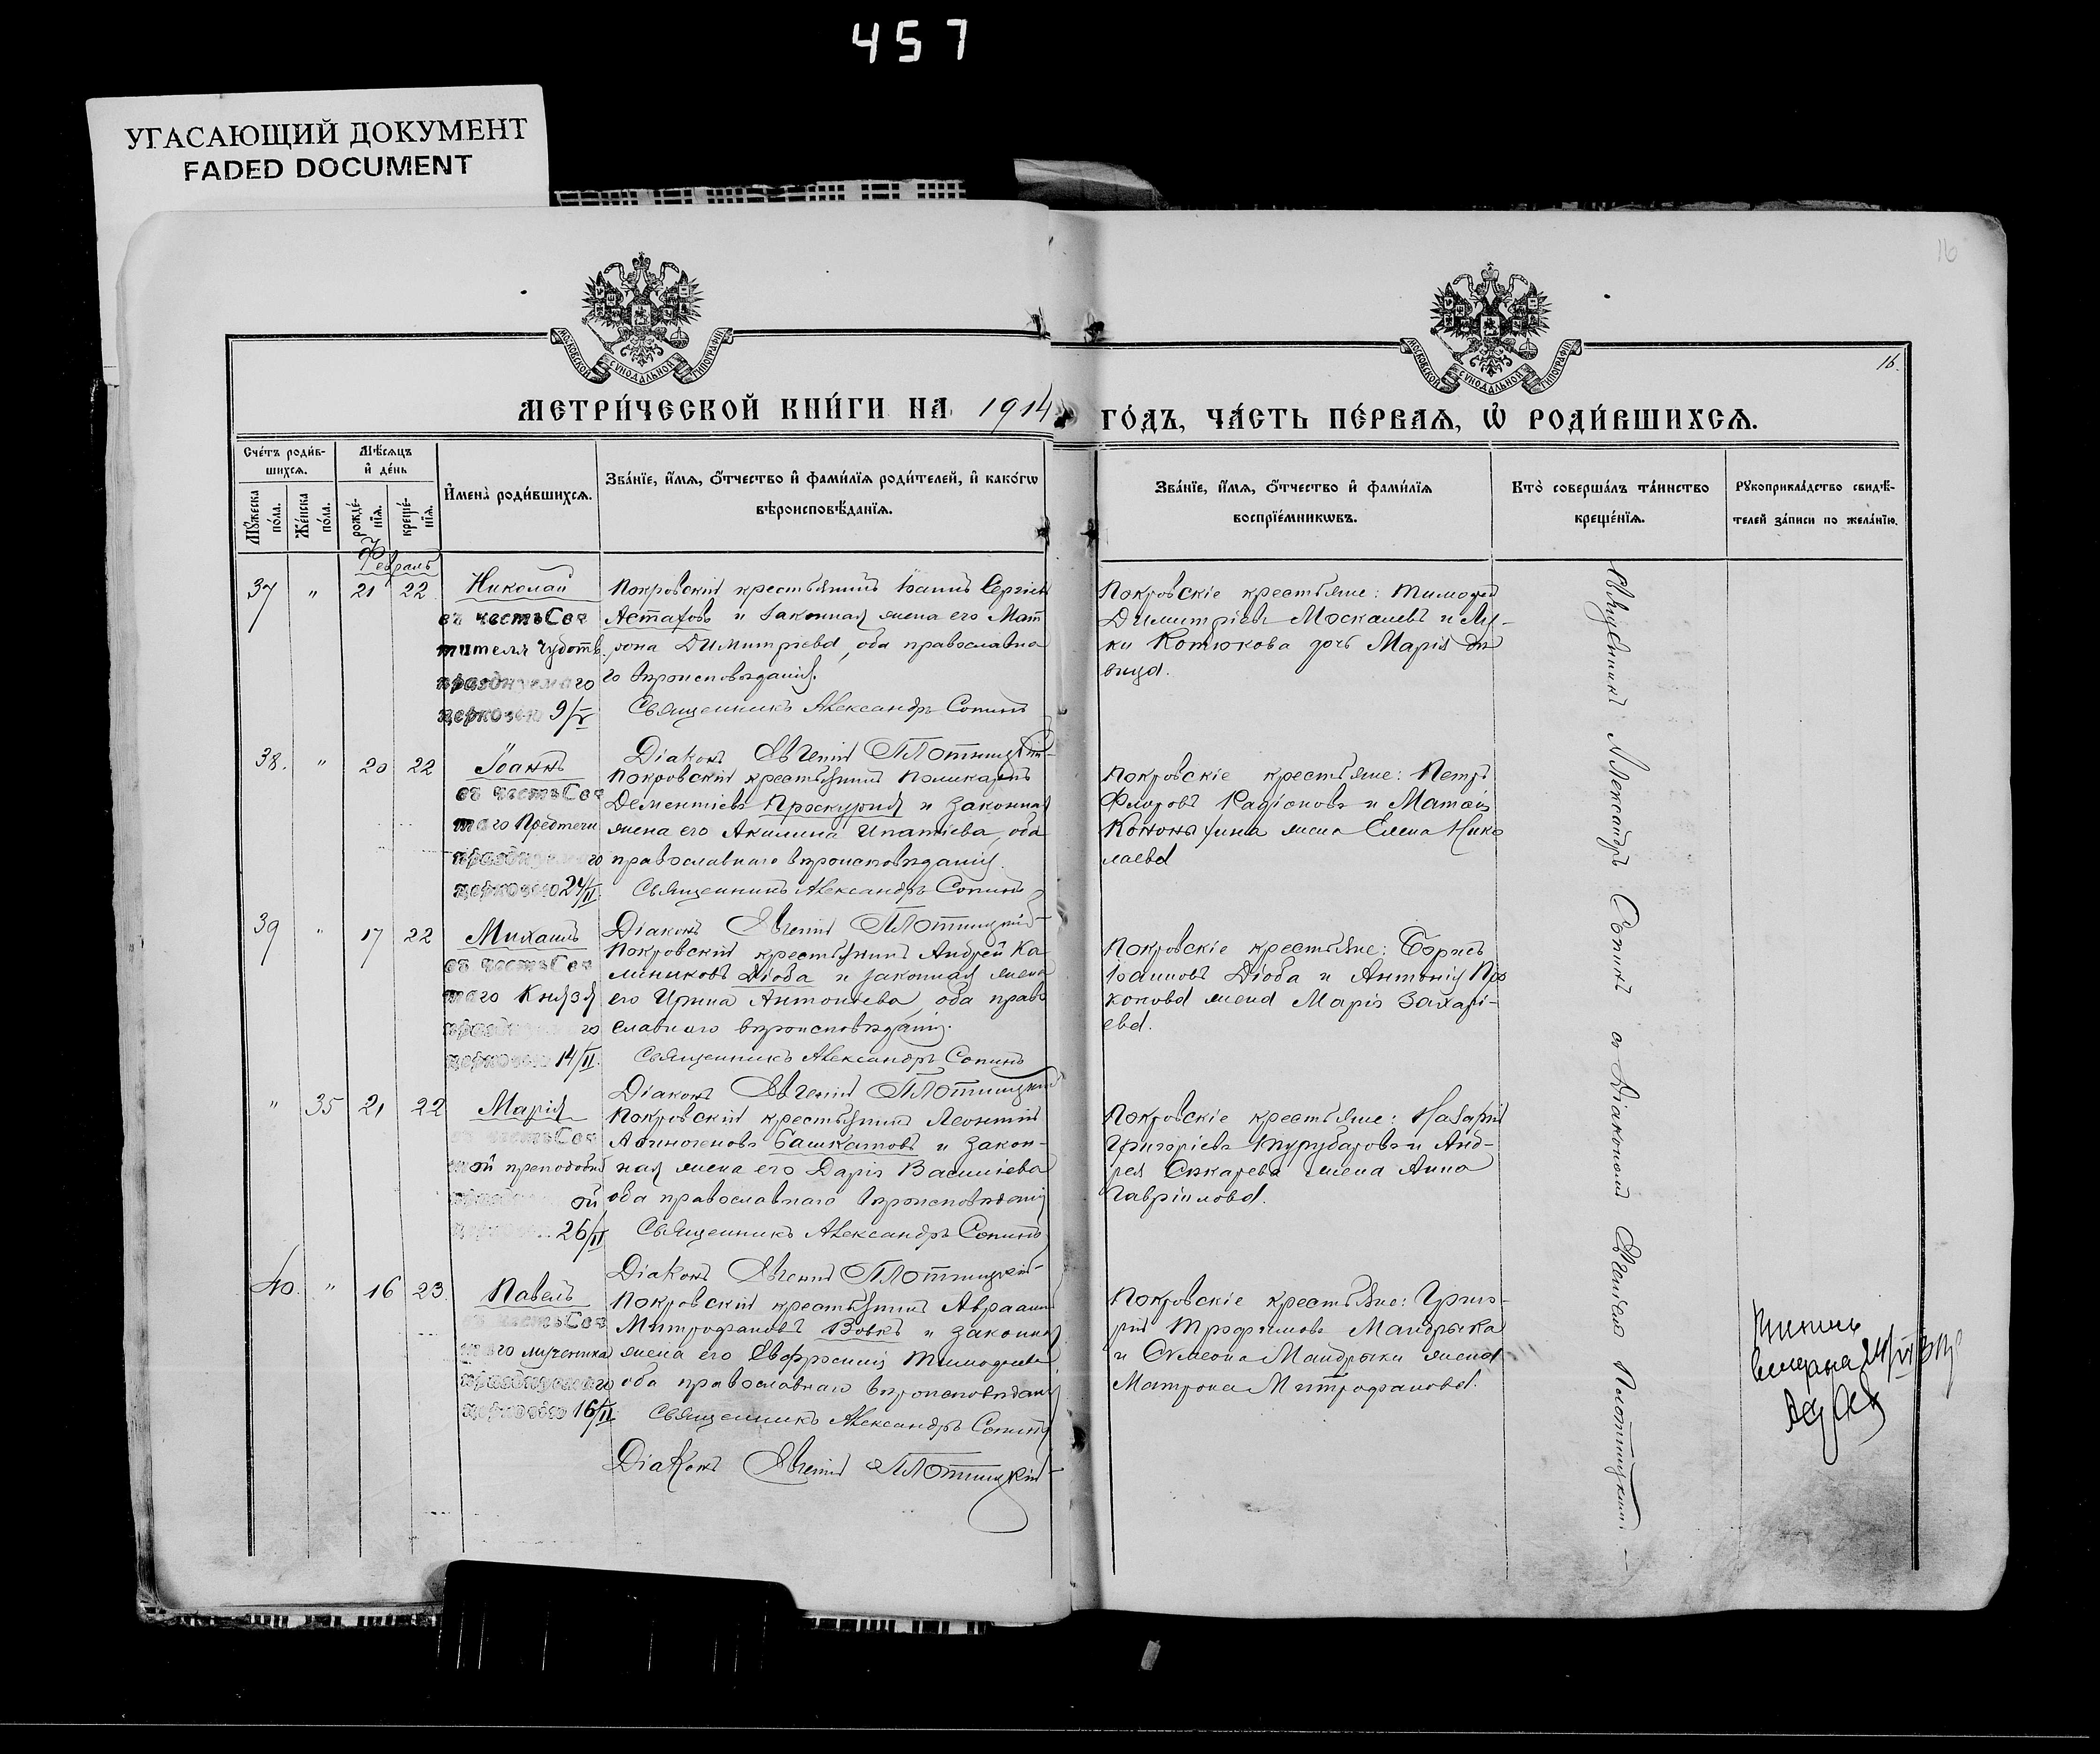 457
УГАСАЮЩИЙ ДОКУМЕНТ
FADED DOCUMENT
16
МОСКОВСКОЙ СѴНОДАЛЬНОЙ ТИПОГРАФІИ
МОСКОВСКОЙ СѴНОДАЛЬНОЙ ТИПОГРАФІИ
16.
МЕТРИ́ЧЕСКОЙ КНИ́ГИ НА 1914 ГО́ДЪ, ЧА́СТЬ ПЕ́РВАЯ, Ѡ҆ РОДИ́ВШИХСЯ.
Сче́тъ роди́вшихся.
Мꙋ́жеска по́ла.
Же́нска по́ла.
Мѣ́сяцъ и҆ де́нь
рожде́нїя.
креще́нїя.
И҆мена̀ роди́вшихся.
Зва́нїе, и҆́мя, ѻ҆́тчество и҆ фами́лїя роди́телей, и҆ како́гѡ
вѣроисповѣ́данїя.
Зва́нїе, и҆́мя, ѻ҆́тчество и҆ фами́лїя
воспрїе́мникѡвъ.
Кто̀ соверша́лъ та́инство
креще́нїя.
Рꙋкоприкла́дство свидѣ́-
телей за́писи по жела́нїю.
Февраль
37 " 21 22 Николай
въ честь Свя
тителя Чудотв.
празднуемаго
церковью 9/V
Покровскій крестьянинъ Іоаннъ Сергіевъ
Астаховъ и законная жена его Мат
рона Димитріева, оба православна
го вѣроисповѣданія.
Священникъ Александръ Сопинъ
Діаконъ Евгеній Плотницкій
Покровскіе крестьяне: Тимофей
Димитріевъ Москалевъ и Лу-
ки Котюкова дочь Марія дѣ
вица.
38. " 20 22 Іоаннъ
въ честь Свя
таго Предтечи
празднуемаго
церковью 24/II
Покровскій крестьянинъ Поликарпъ
Дементіевъ Проскурня и законная
жена его Акилина Ипатіева, оба
православнаго вѣроисповѣданія.
Священникъ Александръ Сопинъ
Діаконъ Евгеній Плотницкій
Покровскіе крестьяне: Петръ
Флоровъ Радіоновъ и Матѳія
жена Елена Нико
лаева
39 " 17 22 Михаилъ
въ честь Свя
таго Князя
го
церковью 14/II.
Покровскій крестьянинъ Андрей Ка
лениковъ Дзюба и законная жена
его Ирина Антоніева, оба право
славнаго вѣроисповѣданія.
Священникъ Александръ Сопинъ
Діаконъ Евгеній Плотницкій
Покровскіе крестьяне: Борисъ
Іоанновъ Дзюба и Антонія Про
копова жена Марія Захарі-
ева.
" 35 21 22 Марія
въ честь Свя
той преподобн
ой
26/II
Покровскій крестьянинъ Леонтій
Аѳиногеновъ Башкатовъ и закон-
ная жена его Дарія Василіева
оба православнаго вѣроисповѣданія
Священникъ Александръ Сопинъ
Діаконъ Евгеній Плотницкій
Покровскіе крестьяне: Назарій
Григоріевъ и Анд-
рея жена Анна
Гавріилова.
40. " 16 23. Павелъ
въ честь Свя
таго мученика
празднуемаго
церковью 16/II
Покровскій крестьянинъ Авраамъ
Митрофановъ Вовкъ и законная
жена его Евфросинія Тимофеева
оба православнаго вѣроисповѣданія
Священникъ Александръ Сопинъ
Діаконъ Евгеній Плотницкій
Покровскіе крестьяне: Григо-
рій Трофимовъ Мандрыка
и Симеона Мандрыки жена
Матрона Митрофанова.
Священникъ Александръ Сопинъ съ Діакономъ Евгеніемъ Плотницкимъ.